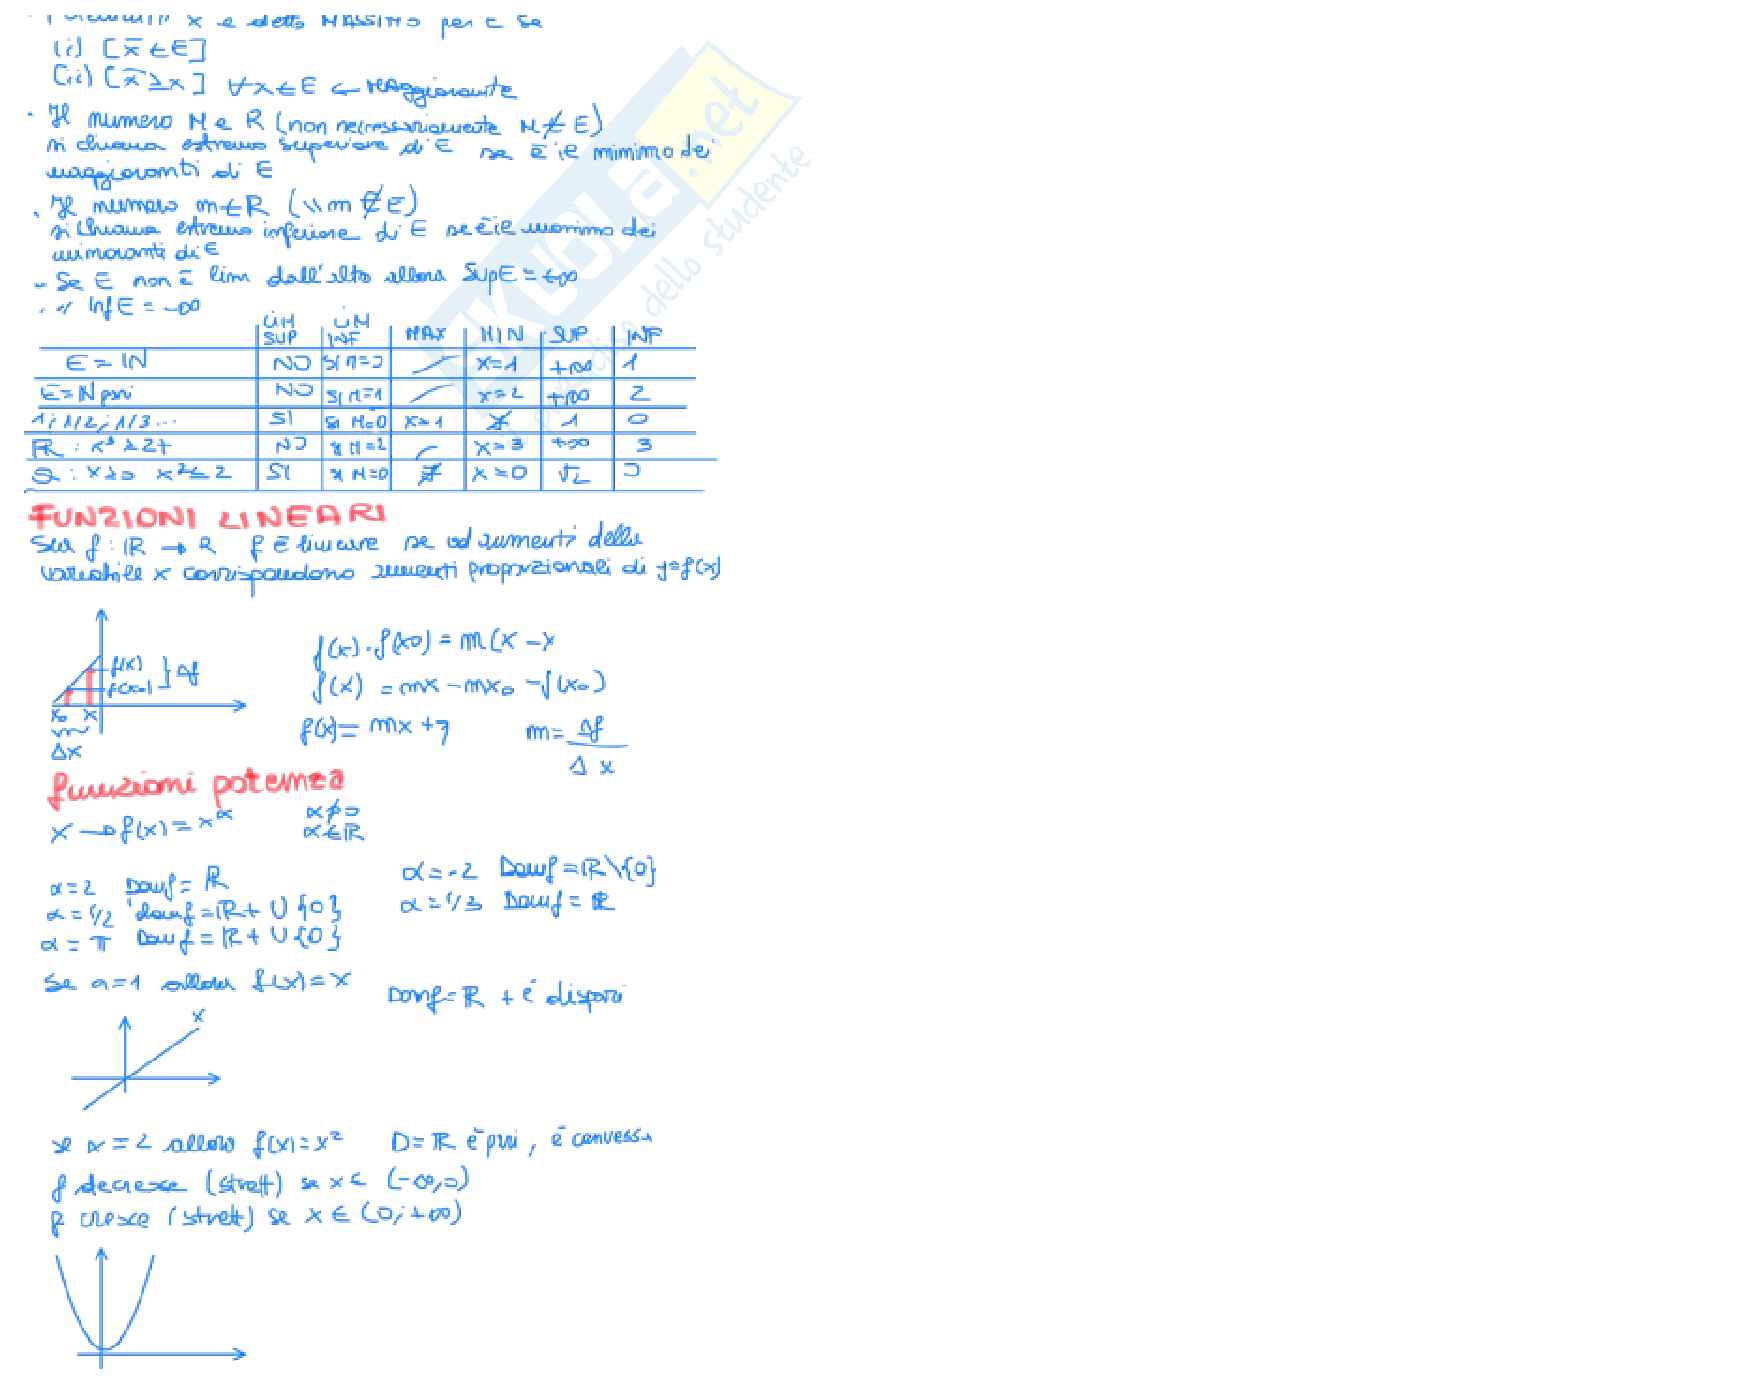 x è detto MASSIMO per E se
(i) [x̄ ∈ E]
(ii) [x̄ ≥ x] ∀x ∈ E ← Maggiorante
· Il numero M ∈ R (non necessariamente M ∉ E)
si chiama estremo superiore di E se è il minimo dei
maggioranti di E
· Il numero m ∈ R (\\ m ∉ E)
si chiama estremo inferiore di E se è il massimo dei
minoranti di E
- Se E non è lim dall'alto allora SupE = +∞
InfE = -∞
LIM SUP LIM INF MAX MIN SUP INF
E = IN NO SI M=0 x=1 +∞ 1
E = N pari NO SI M=1 x=2 +∞ 2
1; 1/2; 1/3... SI SI M=0 x=1 ∄ 1 0
R : x³ ≥ 27 NO M=2 x=3 +∞ 3
Q : x≥0 x² ≤ 2 SI M=0 ∄ x=0 √2 0
FUNZIONI LINEARI
Sia f : R → R f è lineare se ad aumenti della
variabile x corrispondono aumenti proporzionali di y=f(x)
f(x)
f(x0) } Δf
x0 x
Δx
f(x) - f(x0) = m(x - x
f(x) = mx - mx0 - f(x0)
f(x) = mx + q m = Δf / Δx
funzioni potenza
x → f(x) = x^α α ≠ 0
α ∈ R
α = 2 Domf = R α = -2 Domf = R\{0}
α = 1/2 domf = R+ ∪ {0} α = 1/3 Domf = R
α = π Domf = R+ ∪ {0}
Se a=1 allora f(x) = x Domf = R + è dispari
x
se α = 2 allora f(x) = x² D = R è pari, è convessa
f decresce (strett) se x ∈ (-∞,0)
f cresce (strett) se x ∈ (0; +∞)
SKUOLA.net
paradiso dello studente